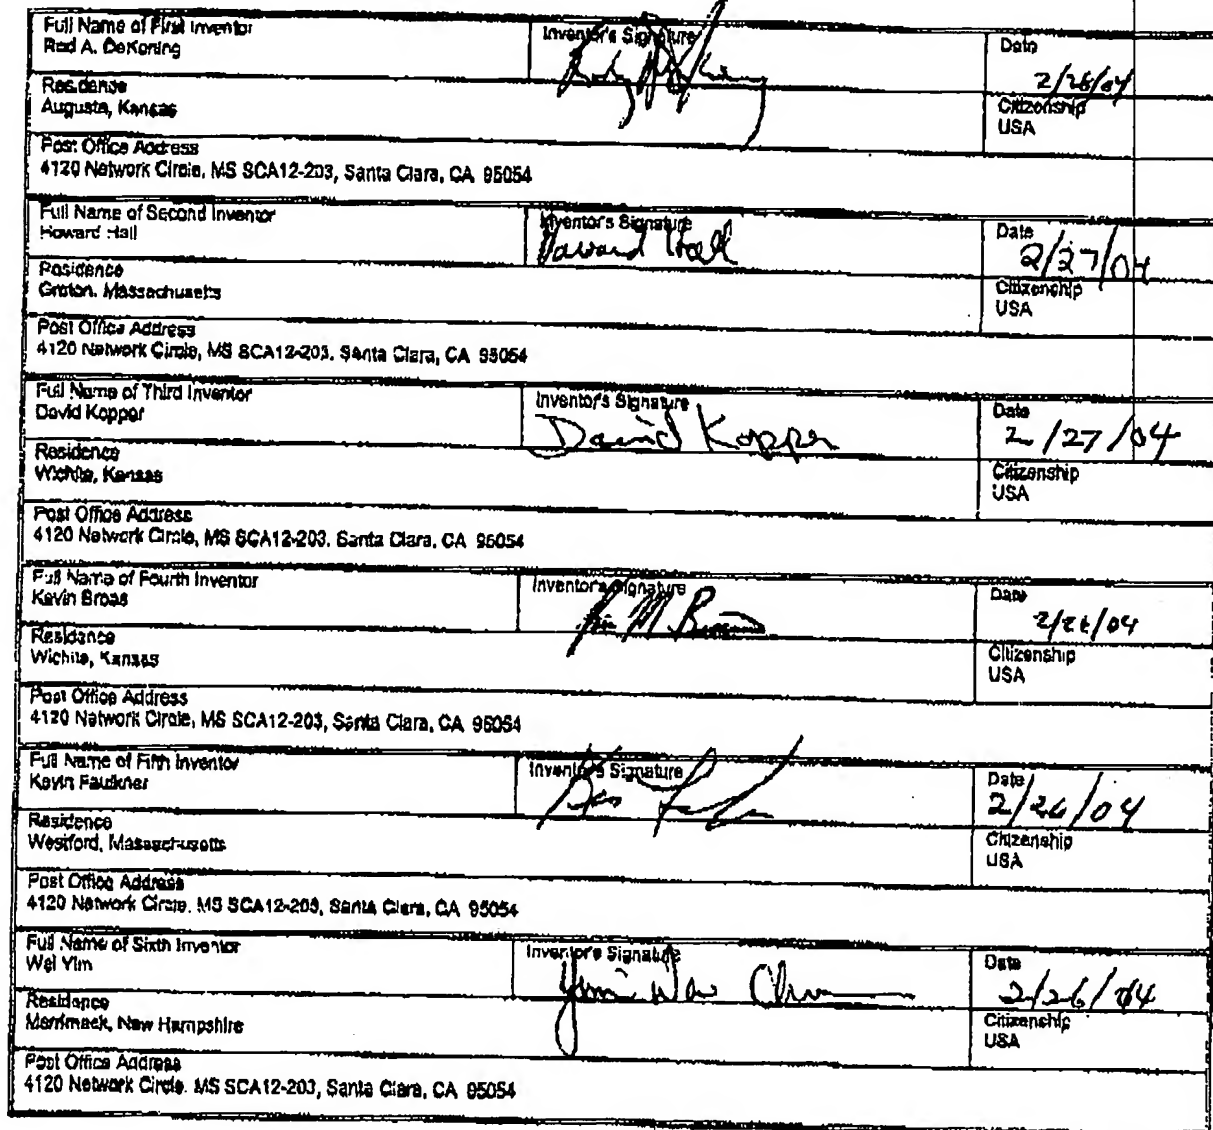 Full Name of First Inventor
Rod A. DeKoning
Inventor's Signature
Date
2/26/04
Residence
Augusta, Kansas
Citizenship
USA
Post Office Address
4120 Network Circle, MS SCA12-203, Santa Clara, CA 95054
Full Name of Second Inventor
Howard Hall
Inventor's Signature
Howard Hall
Date
2/27/04
Residence
Groton, Massachusetts
Citizenship
USA
Post Office Address
4120 Network Circle, MS SCA12-203, Santa Clara, CA 95054
Full Name of Third Inventor
David Kopper
Inventor's Signature
David Kopper
Date
2/27/04
Residence
Wichita, Kansas
Citizenship
USA
Post Office Address
4120 Network Circle, MS SCA12-203, Santa Clara, CA 95054
Full Name of Fourth Inventor
Kevin Broas
Inventor's Signature
Date
2/26/04
Residence
Wichita, Kansas
Citizenship
USA
Post Office Address
4120 Network Circle, MS SCA12-203, Santa Clara, CA 95054
Full Name of Fifth Inventor
Kevin Faulkner
Inventor's Signature
Date
2/26/04
Residence
Westford, Massachusetts
Citizenship
USA
Post Office Address
4120 Network Circle, MS SCA12-203, Santa Clara, CA 95054
Full Name of Sixth Inventor
Wai Yim
Inventor's Signature
Date
2/26/04
Residence
Merrimack, New Hampshire
Citizenship
USA
Post Office Address
4120 Network Circle, MS SCA12-203, Santa Clara, CA 95054